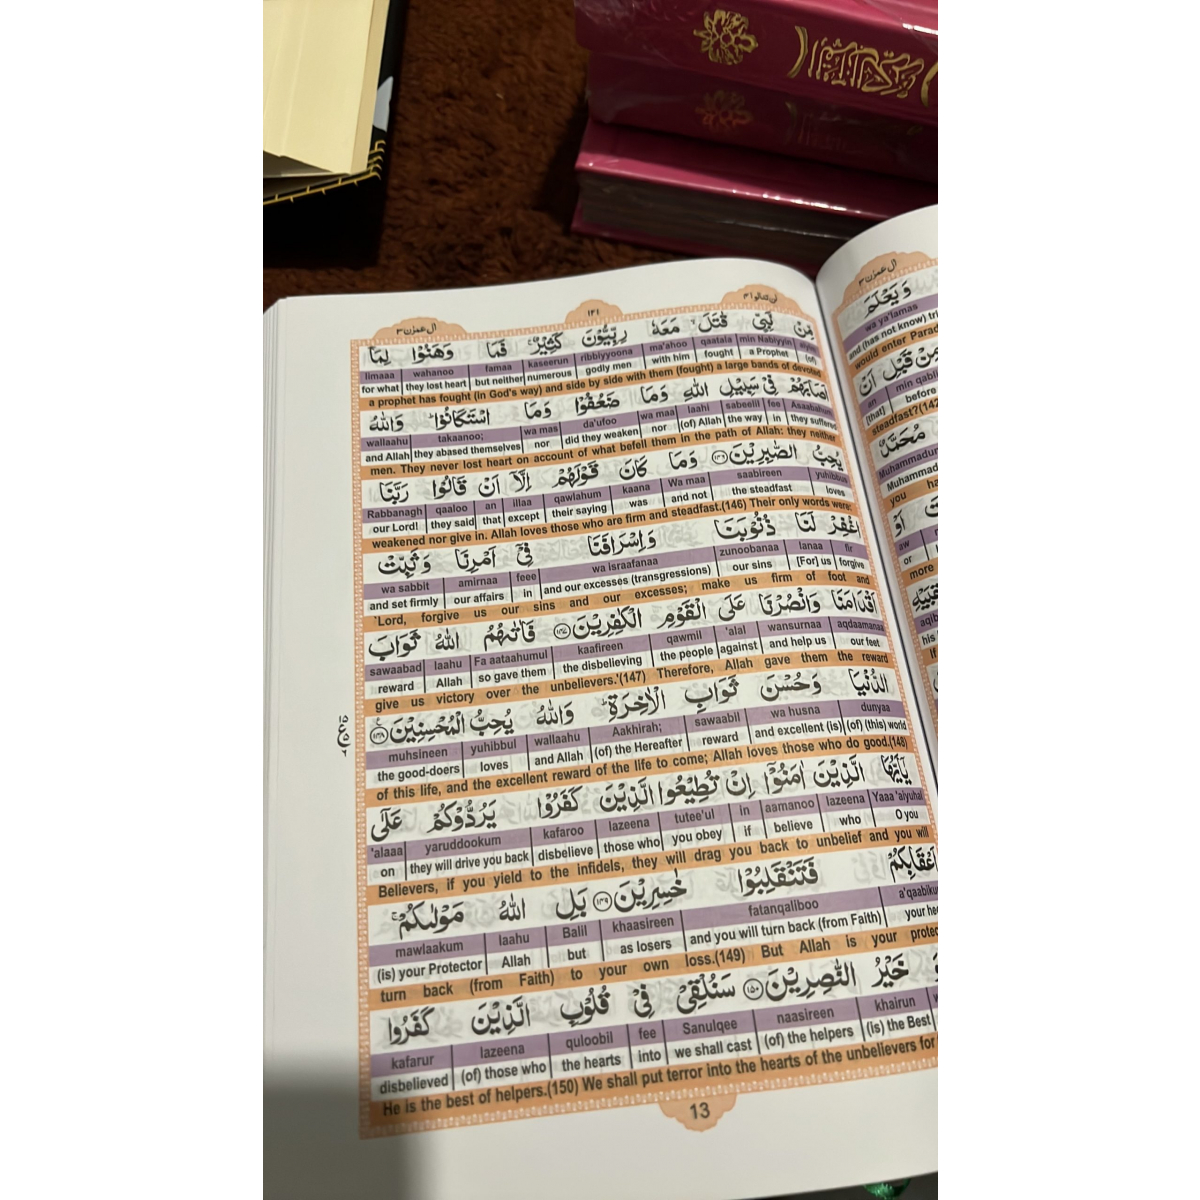 اٰل عمرٰن ٣
١٢١
لن تنالوا ٤
مِّنْ نَّبِيٍّ قٰتَلَ ۙ مَعَهٗ رِبِّيُّوْنَ كَثِيْرٌ ۚ فَمَا وَهَنُوْا لِمَاۤ
limaaa wahanoo famaa kaseerun ribbiyyoona ma'ahoo qaatala min Nabiyyin
for what they lost heart but neither numerous godly men with him fought a Prophet (of)
a prophet has fought (in God's way) and side by side with them (fought) a large bands of devoted
اَصَابَهُمْ فِيْ سَبِيْلِ اللّٰهِ وَمَا ضَعُفُوْا وَمَا اسْتَكَانُوْا ؕ وَاللّٰهُ
wallaahu takaanoo; wa mas da'ufoo wa maa laahi sabeelil fee Asaabahum
and Allah they abased themselves nor did they weaken nor (of) Allah the way in they suffered
men. They never lost heart on account of what befell them in the path of Allah: they neither
يُحِبُّ الصّٰبِرِيْنَ ﴿١٤٦﴾ وَمَا كَانَ قَوْلَهُمْ اِلَّاۤ اَنْ قَالُوْا رَبَّنَا
Rabbanagh qaaloo an illaa qawlahum kaana Wa maa saabireen yuhibbus
our Lord! they said that except their saying was and not the steadfast loves
weakened nor give in. Allah loves those who are firm and steadfast.(146) Their only words were:
اغْفِرْ لَنَا ذُنُوْبَنَا وَاِسْرَافَنَا فِيْۤ اَمْرِنَا وَثَبِّتْ
wa sabbit amirnaa feee wa israafanaa zunoobanaa lanaa fir
and set firmly our affairs in and our excesses (transgressions) our sins [For] us forgive
`Lord, forgive us our sins and our excesses; make us firm of foot and
اَقْدَامَنَا وَانْصُرْنَا عَلَى الْقَوْمِ الْكٰفِرِيْنَ ﴿١٤٧﴾ فَاٰتٰىهُمُ اللّٰهُ ثَوَابَ
sawaabad laahu Fa aataahumul kaafireen qawmil 'alal wansurnaa aqdaamanaa
reward Allah so gave them the disbelieving the people against and help us our feet
give us victory over the unbelievers.'(147) Therefore, Allah gave them the reward
الدُّنْيَا وَحُسْنَ ثَوَابِ الْاٰخِرَةِ ؕ وَاللّٰهُ يُحِبُّ الْمُحْسِنِيْنَ ﴿١٤٨﴾
muhsineen yuhibbul wallaahu Aakhirah; sawaabil wa husna dunyaa
the good-doers loves and Allah (of) the Hereafter reward and excellent (is) (of) (this) world
of this life, and the excellent reward of the life to come; Allah loves those who do good.(148)
يٰۤاَيُّهَا الَّذِيْنَ اٰمَنُوْۤا اِنْ تُطِيْعُوا الَّذِيْنَ كَفَرُوْا يَرُدُّوْكُمْ عَلٰۤى
'alaaa yaruddookum kafaroo lazeena tutee'ul in aamanoo lazeena Yaaa 'aiyuhal
on they will drive you back disbelieve those who you obey if believe who O you
Believers, if you yield to the infidels, they will drag you back to unbelief and you will
اَعْقَابِكُمْ فَتَنْقَلِبُوْا خٰسِرِيْنَ ﴿١٤٩﴾ بَلِ اللّٰهُ مَوْلٰىكُمْ ۚ
mawlaakum laahu Balil khaasireen fatanqaliboo
(is) your Protector Allah but as losers and you will turn back (from Faith) your
turn back (from Faith) to your own loss.(149) But Allah is your
خَيْرُ النّٰصِرِيْنَ ﴿١٥٠﴾ سَنُلْقِيْ فِيْ قُلُوْبِ الَّذِيْنَ كَفَرُوا
kafarur lazeena quloobil fee Sanulqee naasireen khairun
disbelieved (of) those who the hearts into we shall cast (of) the helpers (is) the Best
He is the best of helpers.(150) We shall put terror into the hearts of the unbelievers for
13
اٰل عمرٰن ٣
وَيَعْلَمَ
wa ya'lamas
and (has not know)
would enter
مِنْ قَبْلِ اَنْ
an min
[that] before
steadfast?
مُحَمَّدٌ
you
اَوْ
aw
or
more
his
If